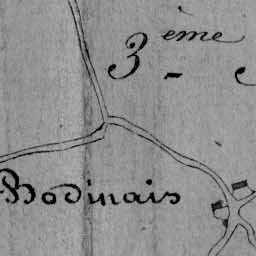 3ème
Bodinais